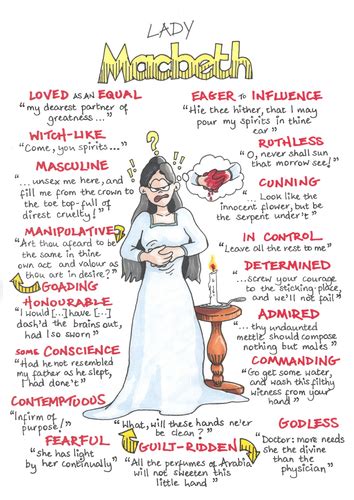 LADY
Macbeth
LOVED AS AN EQUAL
"my dearest partner of
greatness..."
WITCH-LIKE
"Come, you spirits..."
MASCULINE
"... unsex me here, and
fill me from the crown to
the toe top-full of
direst cruelty!"
MANIPULATIVE
"Art thou afeard to be
the same in thine
own act and valour as
thou art in desire?"
GOADING
HONOURABLE
"I would [...] have [...]
dash'd the brains out,
had I so sworn"
SOME CONSCIENCE
"Had he not resembled
my father as he slept,
I had done't"
CONTEMPTUOUS
"Infirm of
purpose!"
FEARFUL
"she has light
by her continually"
! ? !
EAGER TO INFLUENCE
"Hie thee hither, that I may
pour my spirits in thine
ear"
RUTHLESS
"O, never shall sun
that morrow see!"
CUNNING
"... Look like the
innocent flower, but be
the serpent under't"
IN CONTROL
"Leave all the rest to me"
DETERMINED
"...screw your courage
to the sticking-place,
and we'll not fail"
ADMIRED
"... thy undaunted
mettle should compose
nothing but males"
COMMANDING
"Go get some water,
and wash this filthy
witness from your
hand"
GODLESS
"Doctor: more needs
she the divine than
the physician"
"What, will these hands ne'er
be clean?"
GUILT-RIDDEN
"All the perfumes of Arabia
will not sweeten this
little hand"